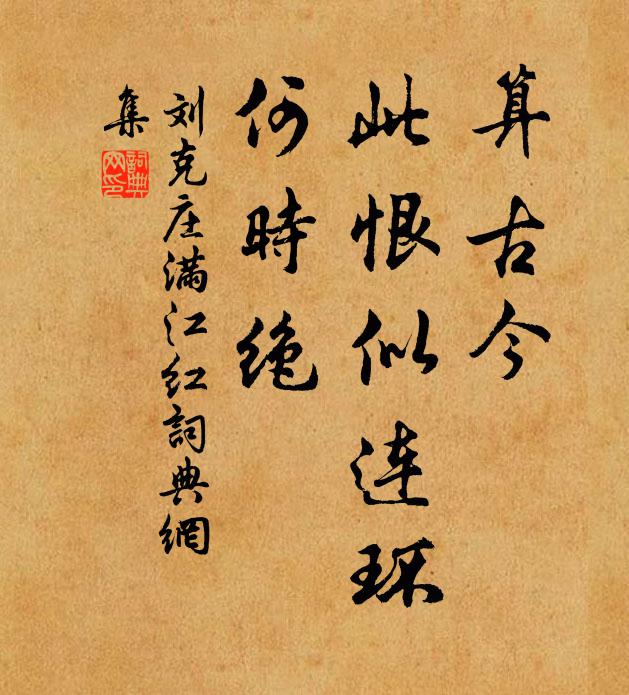 算古今
此恨似连环
何時绝
刘克庄满江红詞典網
集
詞典網印